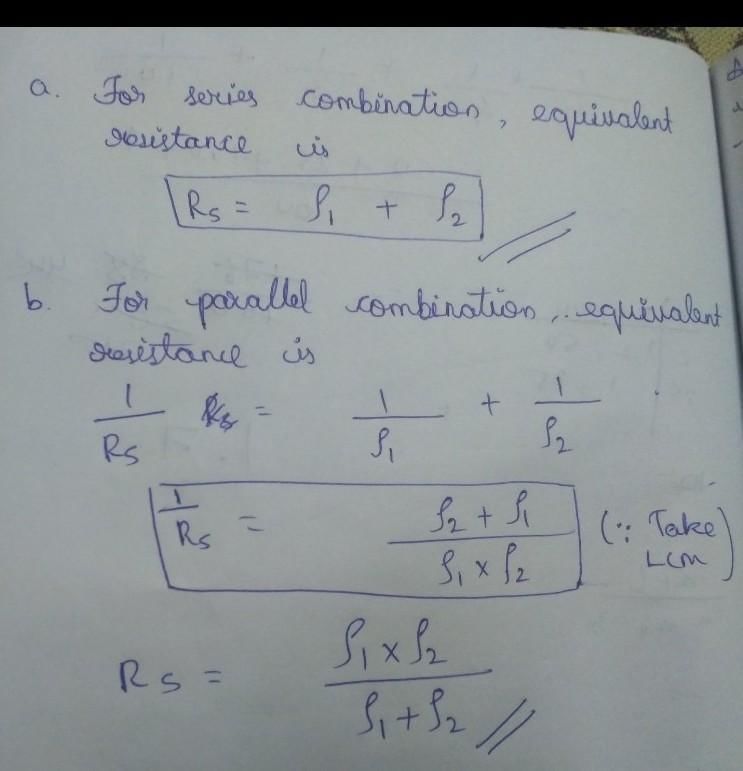 a. For series combination, equivalent
resistance is
Rs = ρ₁ + ρ₂
b. For parallel combination, equivalent
resistance is
1/Rs = 1/ρ₁ + 1/ρ₂
1/Rs = (ρ₂ + ρ₁)/(ρ₁ × ρ₂) (∵ Take LCM)
Rs = (ρ₁ × ρ₂)/(ρ₁ + ρ₂)